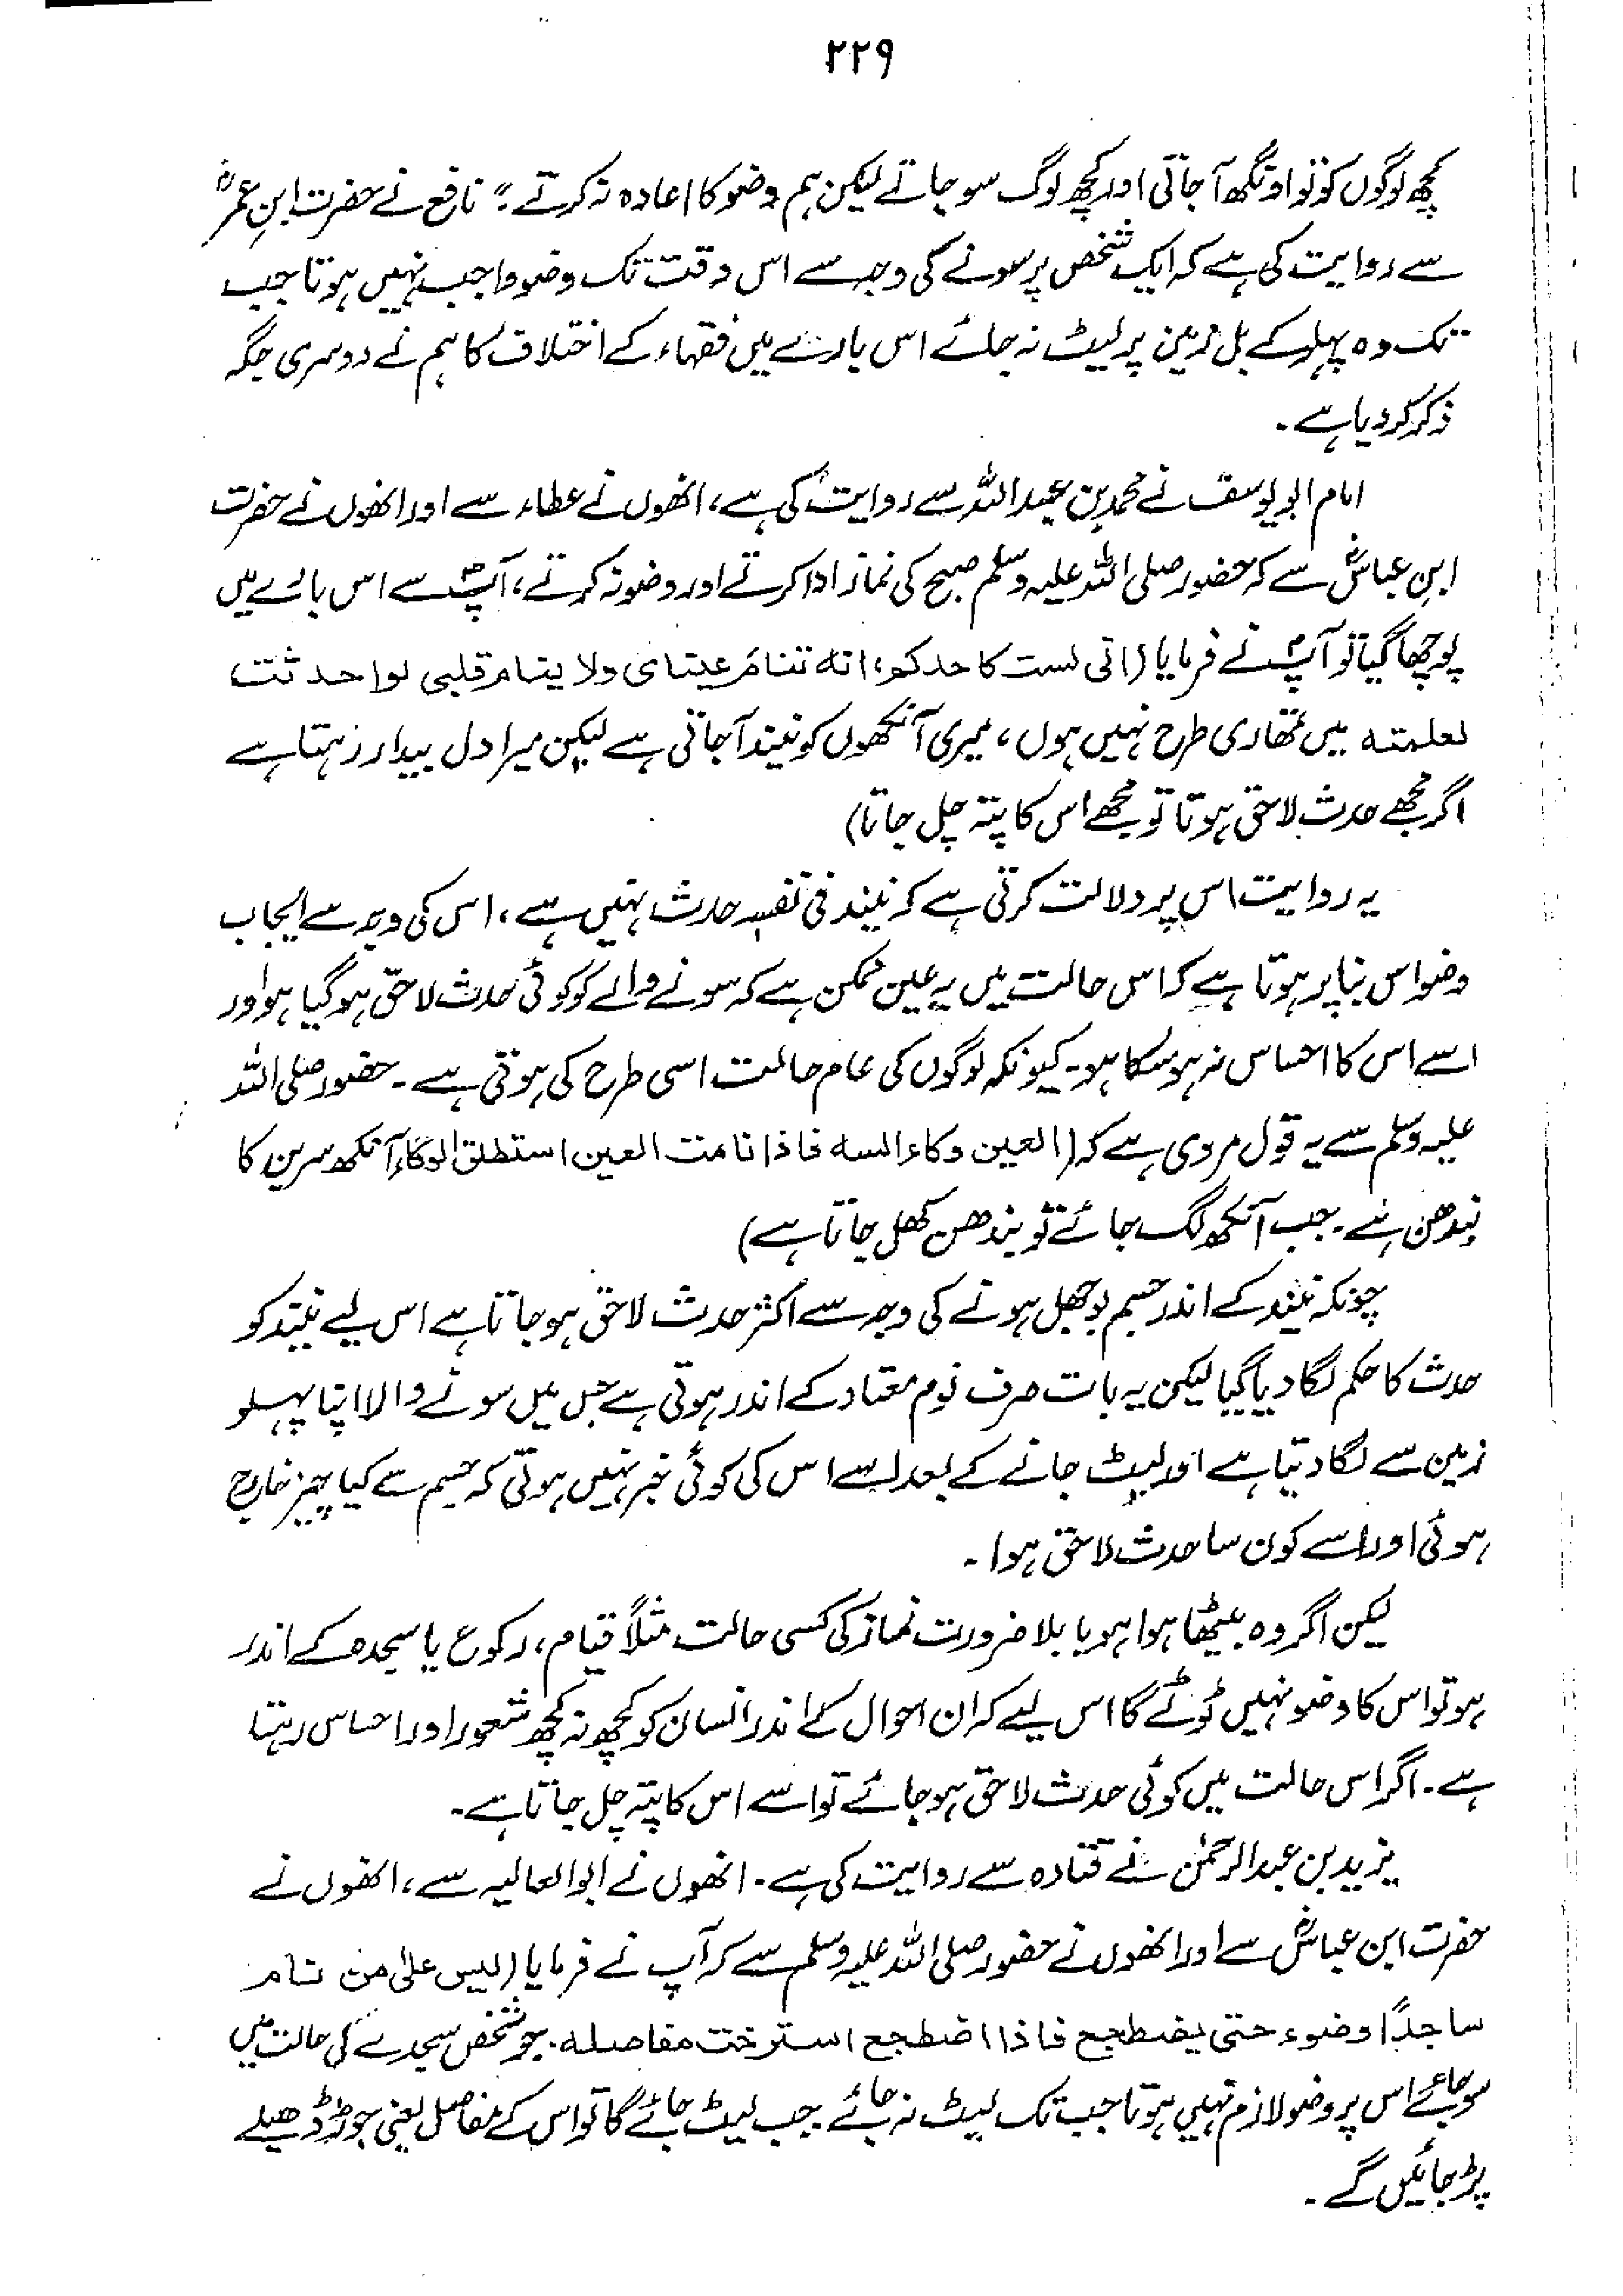 ۲۲۹
کچھ لوگوں کو تو اونگھ آجاتی اور کچھ لوگ سو جاتے لیکن ہم وضو کا اعادہ نہ کرتے" نافع نے حضرت ابنِ عمرؓ
سے روایت کی ہے کہ ایک شخص پر سونے کی وجہ سے اس وقت تک وضو واجب نہیں ہوتا جب
تک وہ پہلو کے بل زمین پر لیٹ نہ جائے اس بارے میں فقہاء کے اختلاف کا ہم نے دوسری جگہ
ذکر کر دیا ہے۔
امام ابو یوسف نے محمد بن عبداللہ سے روایت کی ہے، انھوں نے عطاء سے اور انھوں نے حضرت
ابنِ عباسؓ سے کہ حضور صلی اللہ علیہ وسلم صبح کی نماز ادا کرتے اور وضو نہ کرتے، آپؐ سے اس بارے میں
پوچھا گیا تو آپؐ نے فرمایا (انی لست کاحدکم، انه تنام عینای ولا ینام قلبی لو احدثت
لعلمته میں تمھاری طرح نہیں ہوں، میری آنکھوں کو نیند آجاتی ہے لیکن میرا دل بیدار رہتا ہے
اگر مجھے حدث لاحق ہوتا تو مجھے اس کا پتہ چل جاتا)
یہ روایت اس پر دلالت کرتی ہے کہ نیند فی نفسہٖ حدث نہیں ہے، اس کی وجہ سے ایجاب
وضو اس بنا پر ہوتا ہے کہ اس حالت میں یہ عین ممکن ہے کہ سونے والے کو کوئی حدث لاحق ہو گیا ہو اور
اسے اس کا احساس نہ ہو سکا ہو۔ کیونکہ لوگوں کی عام حالت اسی طرح کی ہوتی ہے۔ حضور صلی اللہ
علیہ وسلم سے یہ قول مروی ہے کہ (العین وکاء السه فاذا نامت العین استطلق الوکاء آنکھ سرین کا
بندھن ہے۔ جب آنکھ لگ جائے تو بندھن کھل جاتا ہے)
چونکہ نیند کے اندر جسم بوجھل ہونے کی وجہ سے اکثر حدث لاحق ہو جاتا ہے اس لیے نیند کو
حدث کا حکم لگا دیا گیا لیکن یہ بات صرف نوم معتاد کے اندر ہوتی ہے جس میں سونے والا اپنا پہلو
زمین سے لگا دیتا ہے اور لیٹ جانے کے بعد اسے اس کی کوئی خبر نہیں ہوتی کہ جسم سے کیا چیز خارج
ہوئی اور اسے کون سا حدث لاحق ہوا۔
لیکن اگر وہ بیٹھا ہوا ہو یا بلا ضرورت نماز کی کسی حالت مثلاً قیام، رکوع یا سجدہ کے اندر
ہو تو اس کا وضو نہیں ٹوٹے گا اس لیے کہ ان احوال کے اندر انسان کو کچھ نہ کچھ شعور اور احساس رہتا
ہے۔ اگر اس حالت میں کوئی حدث لاحق ہو جائے تو اسے اس کا پتہ چل جاتا ہے۔
یزید بن عبدالرحمٰن نے قتادہ سے روایت کی ہے۔ انھوں نے ابوالعالیہ سے، انھوں نے
حضرت ابن عباسؓ سے اور انھوں نے حضور صلی اللہ علیہ وسلم سے کہ آپ نے فرمایا (لیس علیٰ من نام
ساجدًا وضوء حتی یضطجع فاذا اضطجع استرخت مفاصله۔ جو شخص سجدے کی حالت میں
سو جائے اس پر وضو لازم نہیں ہوتا جب تک لیٹ نہ جائے۔ جب لیٹ جائے گا تو اس کے مفاصل یعنی جوڑ ڈھیلے
پڑ جائیں گے۔